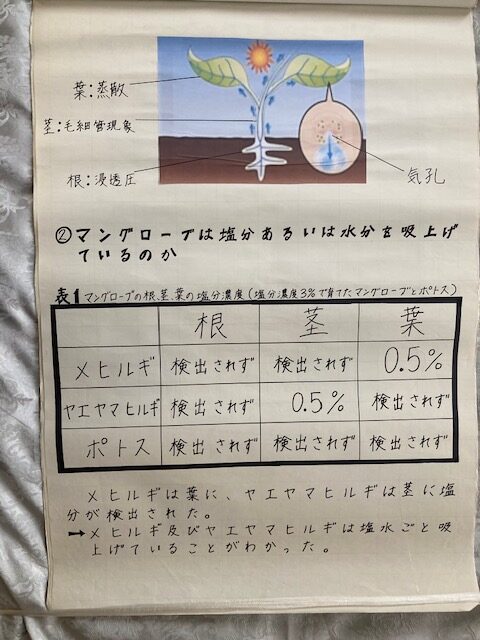 葉:蒸散
茎:毛細管現象
根:浸透圧
気孔
②マングローブは塩分あるいは水分を吸上げ
ているのか
表1 マングローブの根、茎、葉の塩分濃度(塩分濃度3%で育てたマングローブとポトス)
根 茎 葉
メヒルギ 検出されず 検出されず 0.5%
ヤエヤマヒルギ 検出されず 0.5% 検出されず
ポトス 検出されず 検出されず 検出されず
メヒルギは葉に、ヤエヤマヒルギは茎に塩
分が検出された。
➡メヒルギ及びヤエヤマヒルギは塩水ごと吸
上げていることがわかった。